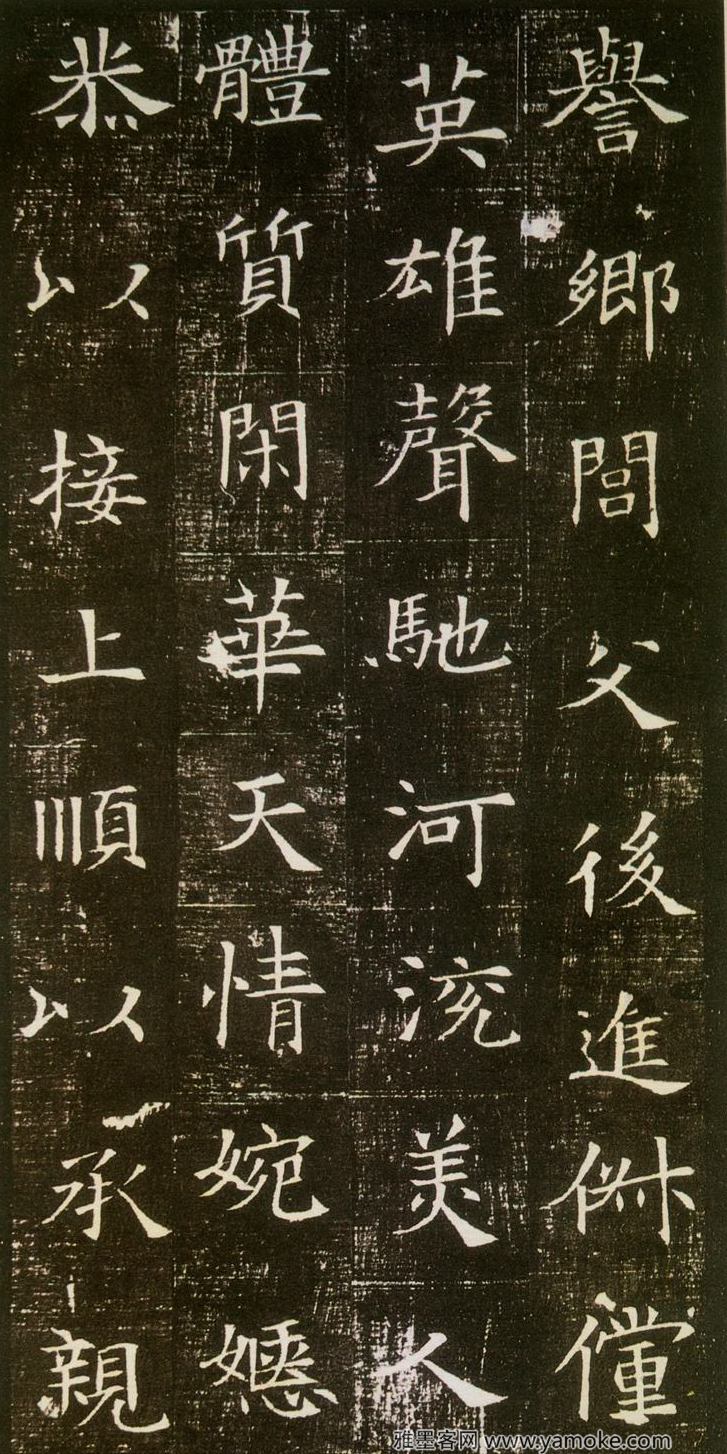 譽鄉閭父後進俶儻
英雄聲馳河渷美人
體質閑華天情婉嫕
恭以接上順以承親
雅墨客网 www.yamoke.com